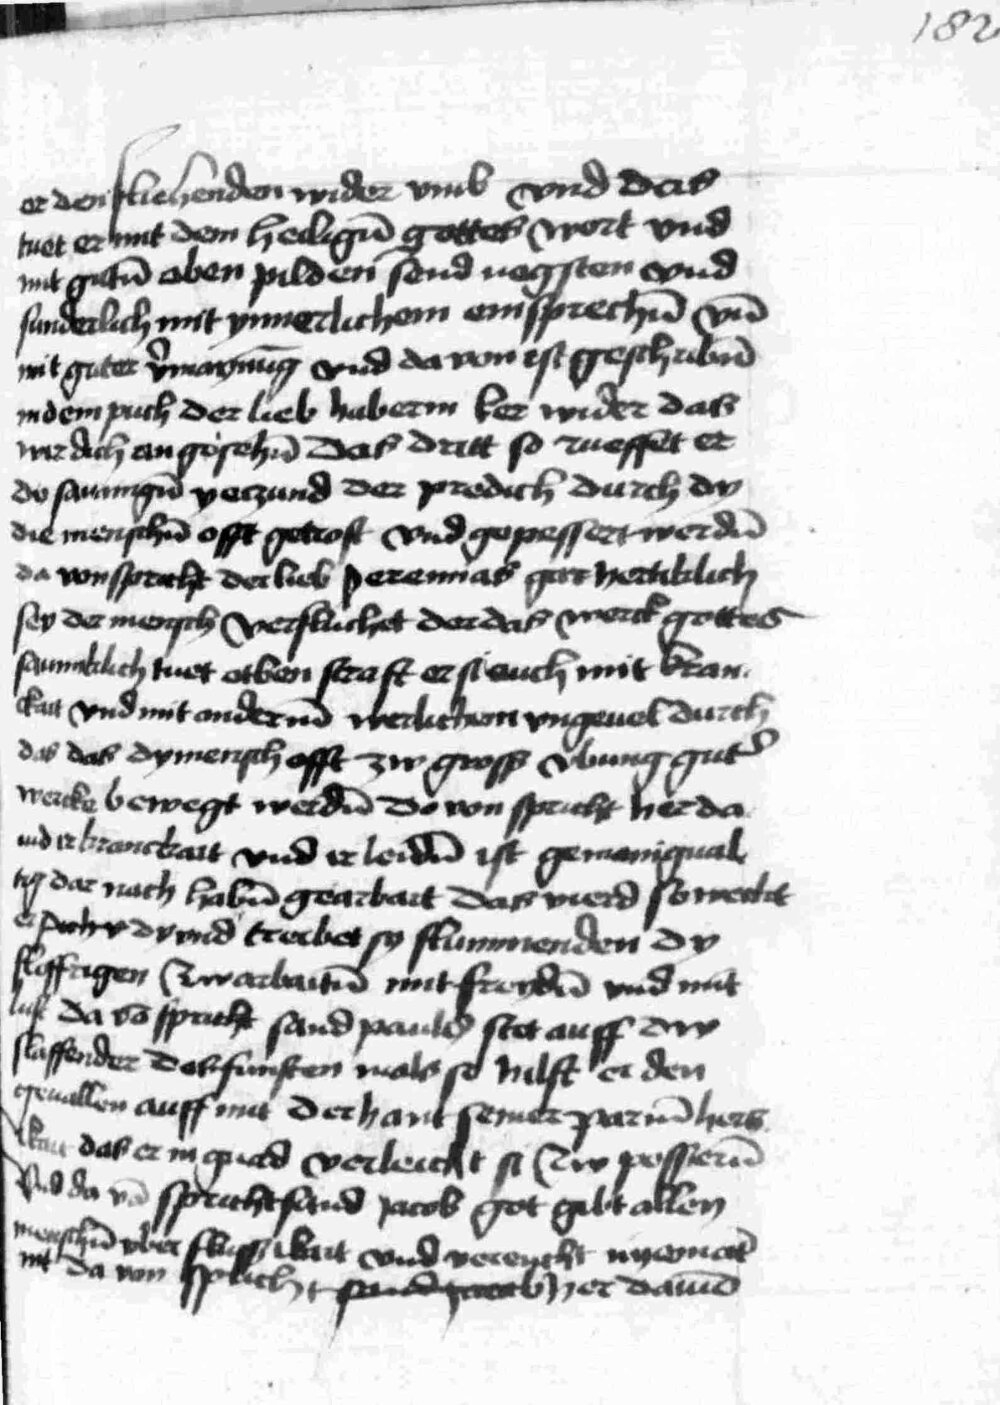 182
er den fliehenden wider vmb vnd das
tuet er mit dem heiligñ gottes wort vnd
mit gutñ eben pilden send negsten vnd
sunderlich mit ynnerlichem einsprechñ vñ
mit guter vnd da von ist geschribñ
in dem puch der lieb haberin ker wider das
wir dich an gesehñ Das dritt so rueffet er
dy saumigñ yeczund der predich durch dy
die menschñ offt getrost vnd gepessert werdñ
da von spricht der lieb Jeremias gar hertiklich
sey der mensch verfluchet der das werck gottes
saumiklich tuet straft er si auch mit kran
ckait vnd mit anderm werlichem vngeuel durch
das das dy mensch offt zw gross vbung gut
wercke bewegt werdñ Do von spricht her da
uid ir kranckait vnd ir leidñ ist gemanigual
tig dar nach habñ gearbait das vierd so weckt
er dy vnd treibet sy slummenden dy
slaffrigen zw arbaitñ mit freydñ vnd mit
lust da võ spricht sand pauls stet auff dw
slaffender Das funften mals so hilft er den
geuallen auff mit der hant seiner parmhercz
ikait das er in gnad verleicht si zw pessierñ
Vnd da võ spricht sand jacob got gibt allen
menschñ vber flussikait vnd nyemat
nit da von spricht sand jacob her dauid